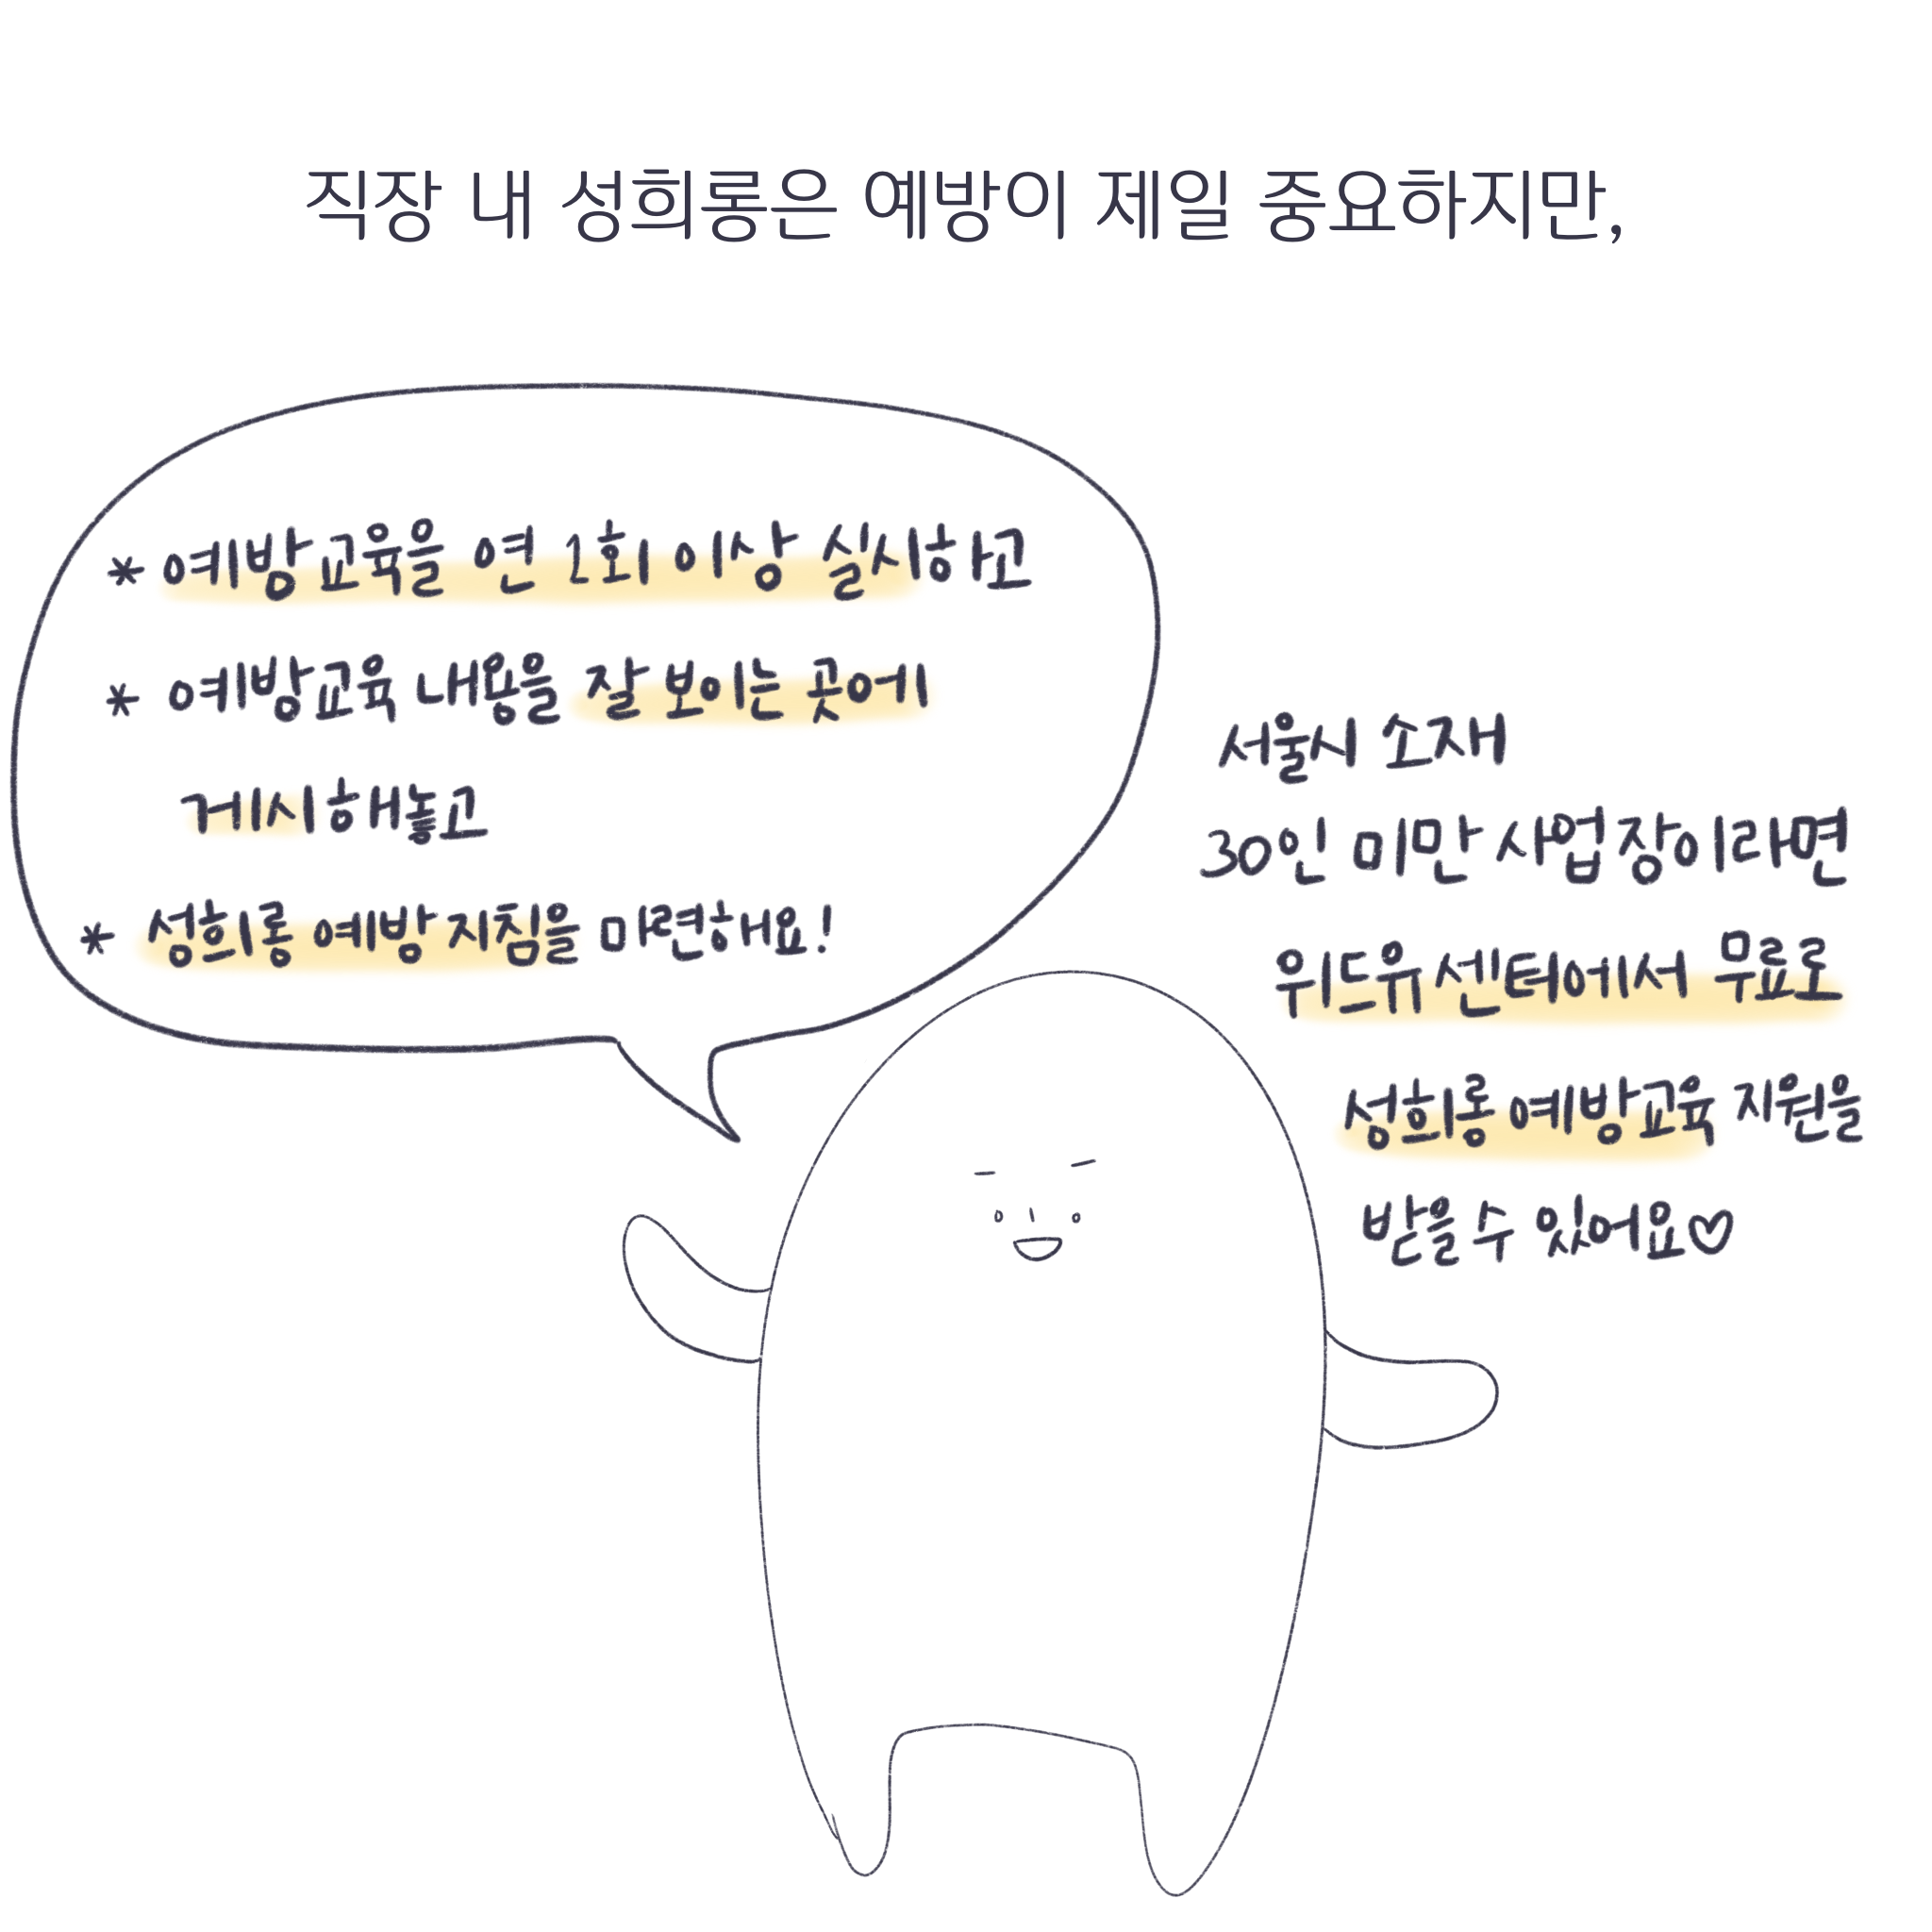 직장 내 성희롱은 예방이 제일 중요하지만,
* 예방교육을 연 1회 이상 실시하고
* 예방교육 내용을 잘 보이는 곳에
게시해놓고
* 성희롱 예방 지침을 마련해요!
서울시 소재
30인 미만 사업장이라면
위드유센터에서 무료로
성희롱 예방교육 지원을
받을 수 있어요♡